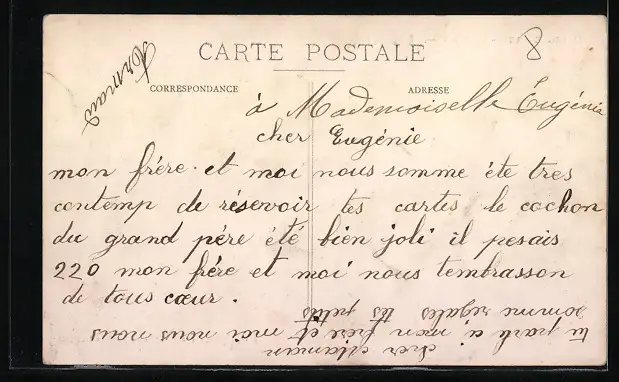 CARTE POSTALE
8
Armand
CORRESPONDANCE
ADRESSE
à Mademoiselle Eugénie
cher Eugénie
mon frère et moi nous somme éte tres
contemp de réservoir tes cartes le cochon
du grand pére été bien joli il pesais
220 mon frére et moi nous tembrasson
de tous cœur.
cher maman
tu parl a mon frère et moi nous nous
somme regales tes petits